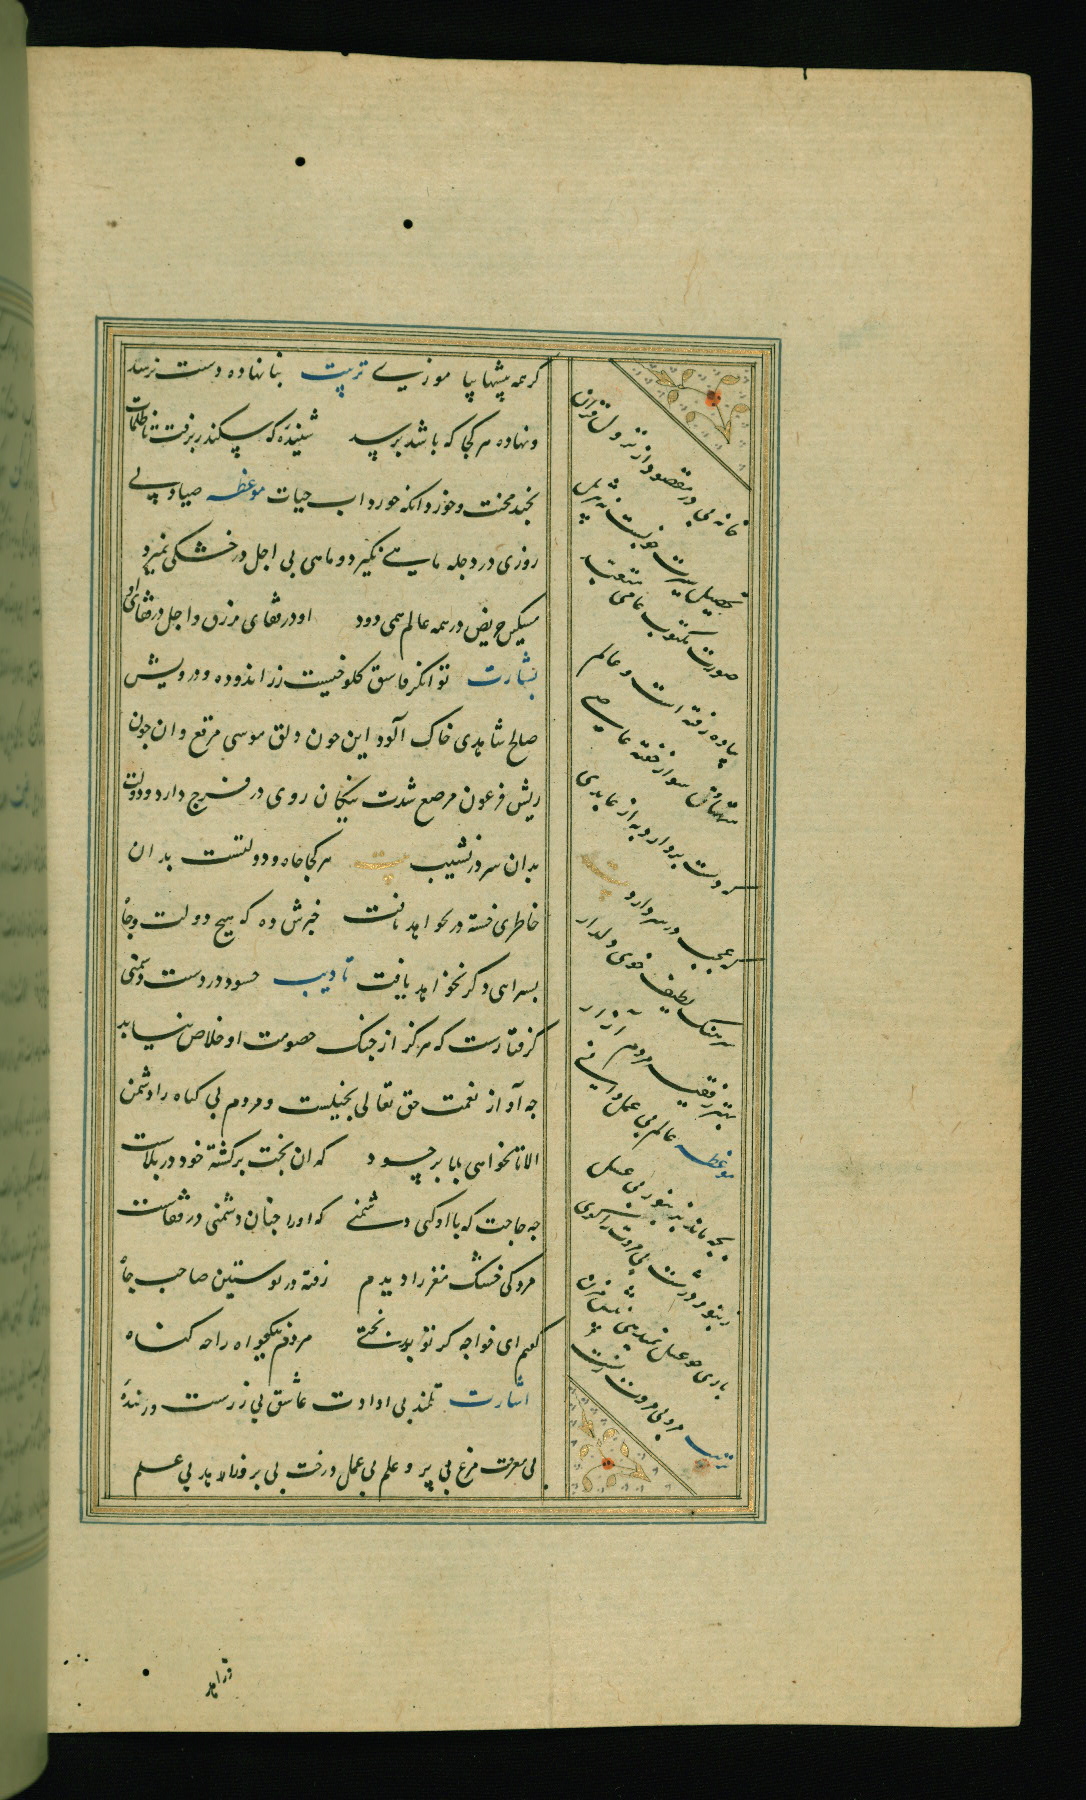 کرهمه پیشها بیاموزی تربیت بنا نهاده دست نرسد
و نهاده هر کجا که باشد برسد شنیده که سکندر برفت تا ظلمات
بچند محنت و خورد انکه خورد اب حیات موعظه صیاد بی
روزی در دجله ماهی نگیرد و ماهی بی اجل در خشکی نمیرد
مسکین حریص در همه عالم همی دود او در قفای رزق و اجل در قفای او
بشارت توانکر فاسق کلوخیست زر اندوده و درویش
صالح شاهدی خاک آلود این چون دلق موسی مرقع و ان چون
ریش فرعون مرصع شدت نیکان روی در فرج دارد و دولت
بدان سر در نشیب بیت هر کجا جاه و دولتست بدان
خاطری خسته در نخواهد یافت خبرش ده که هیچ دولت و جاه
بسرای دکر نخواهد یافت تادیب حسود در دست دشمنی
کرفتارست که هرکز از چنک خصومت او خلاص نیابد
چه آواز نعمت حق تعالی بخیلست و مردم بی کناه را دشمن
الا تا نخواهی بلا بر حسود که ان بخت برکشته خود در بلاست
چه حاجت که با او کنی دشمنی که او را چنان دشمنی در قفاست
مردکی خشک مغز را دیدم رفته در پوستین صاحب جاه
کفتم ای خواجه کر تو بدبختی مردم نیکخواه را چه کناه
اشارت تلمیذ بی ارادت عاشق بی زرست و رونده
بی معرفت مرغ بی پر و علم بی عمل درخت بی بر و زاهد بی علم
خانه بی در مقصود از نزول قران
تحصیل سیرت خوبست نه ترتیل
صورت مکتوب عامی متعبد
پیاده رفته است و عالم
متهاون سوار خفته عاصی
که دست بردارد به از عابدی
که عجب در سر دارد بیت
سرهنک لطیف خوی دلدار
بهتر ز فقیه مردم آزار
موعظه عالم بی عمل را گفتند
بچه ماند بزنبور بی عسل
زنبور درشت بی مروت را کوی
باری چو عسل نمیدهی نیش مزن
تربیت مرد بی مروت زنست
و زاهد